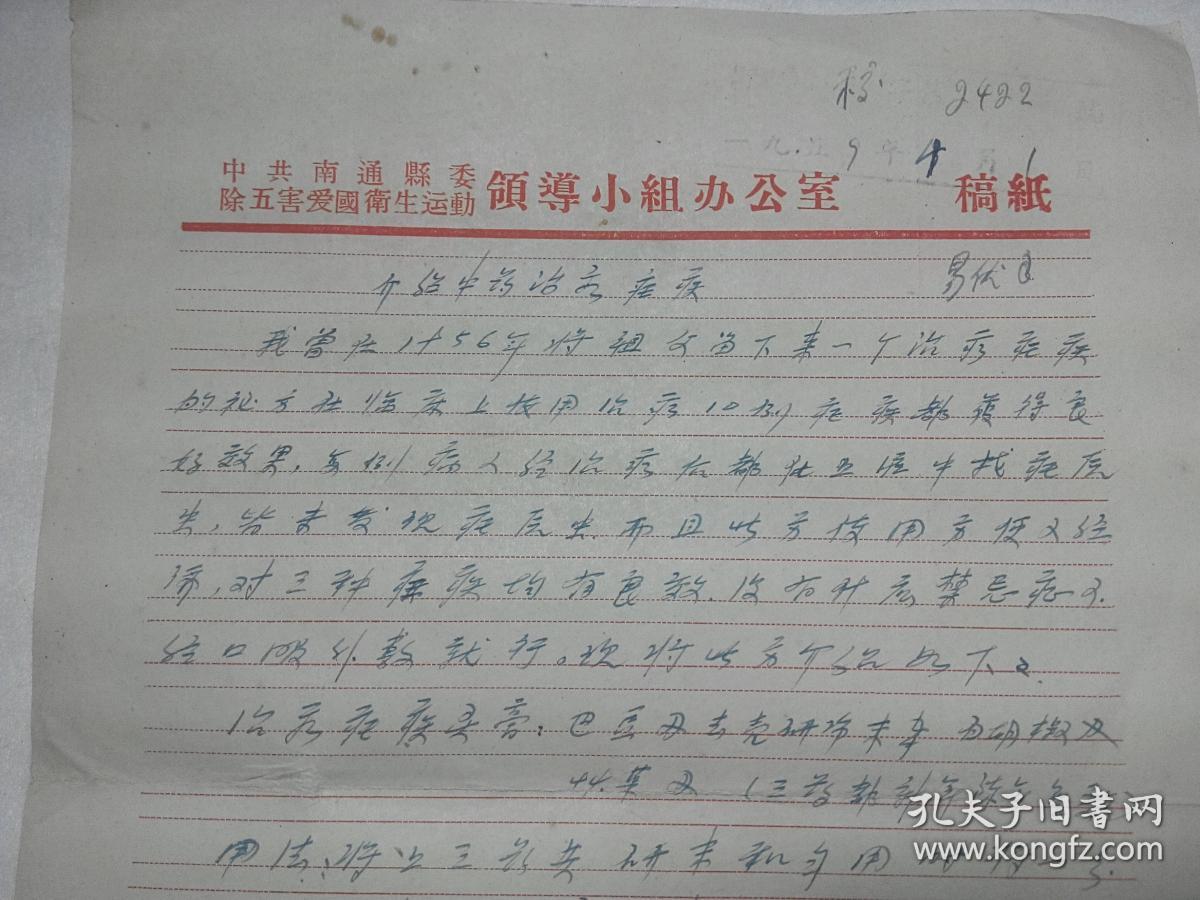 2422
一九五9年4月1
中共南通縣委
除五害爱國衛生运動 領導小組办公室 稿紙
介绍中药治疗疟疾
我曾在1956年将祖父留下来一个治疗疟疾
的秘方在临床上使用治疗10例疟疾都獲得良
好效果,每例病人经治疗后都在血液中找疟原
虫,皆未发现疟原虫.而且此方使用方便又经
济,对三种疟疾均有良效.没有什么禁忌症又
经口服外敷就行。现将此方介绍如下:
治疗疟疾膏:巴豆 去壳研冷末 胡椒
(三药都
用法:将上三药共研末和匀用
孔夫子旧书网
www.kongfz.com